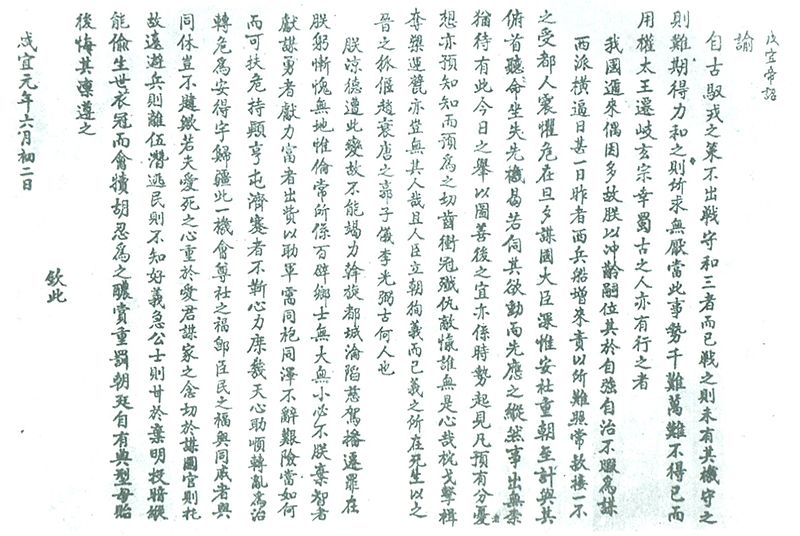 咸宜帝詔
諭
自古馭戎之策不出戰守和三者而已戰之則未有其機守之
則難期得力和之則所求無厭當此事勢千難萬難不得已而
用權太王遷岐玄宗幸蜀古之人亦有行之者
我國邇來偶因多故朕以沖齡嗣位其於自強自治不暇爲謀
西派橫逼日甚一日昨者西兵船增來責以所難照常款接一不
之受都人震懼危在旦夕謀國大臣深惟安社重朝至計與其
俯首聽命坐失先機曷若伺其欲動而先應之縱然事出無柰
猶待有此今日之舉以圖善後之宜亦係時勢起見凡預有分憂
想亦預知知而預爲之切齒衝冠殲仇敵愾誰無是心哉枕戈擊楫
奪槊運甓亦豈無其人哉且人臣立朝徇義而已義之所在死生以之
晉之狐偃趙衰唐之郭子儀李光弼古何人也
朕涼德遭此變故不能竭力斡旋都城淪陷慈駕播遷罪在
朕躬慚愧無地惟倫常所係百辟鄉士無大無小必不朕棄智者
獻謀勇者獻力富者出貲以助軍需同袍同澤不辭艱險當如何
而可扶危持顛亨屯濟蹇者不靳心力庶幾天心助順轉亂爲治
轉危爲安得宇歸疆此一機會尊社之福卽臣民之福與同戚者與
同休豈不韙歟若夫愛死之心重於愛君謀家之念切於謀國官則托
故遠避兵則離伍潛逃民則不知好義急公士則甘於棄明投暗縱
能偷生世衣冠而禽犢胡忍爲之醲賞重罰朝廷自有典型毋貽
後悔其凜遵之
欽此
咸宜元年六月初二日